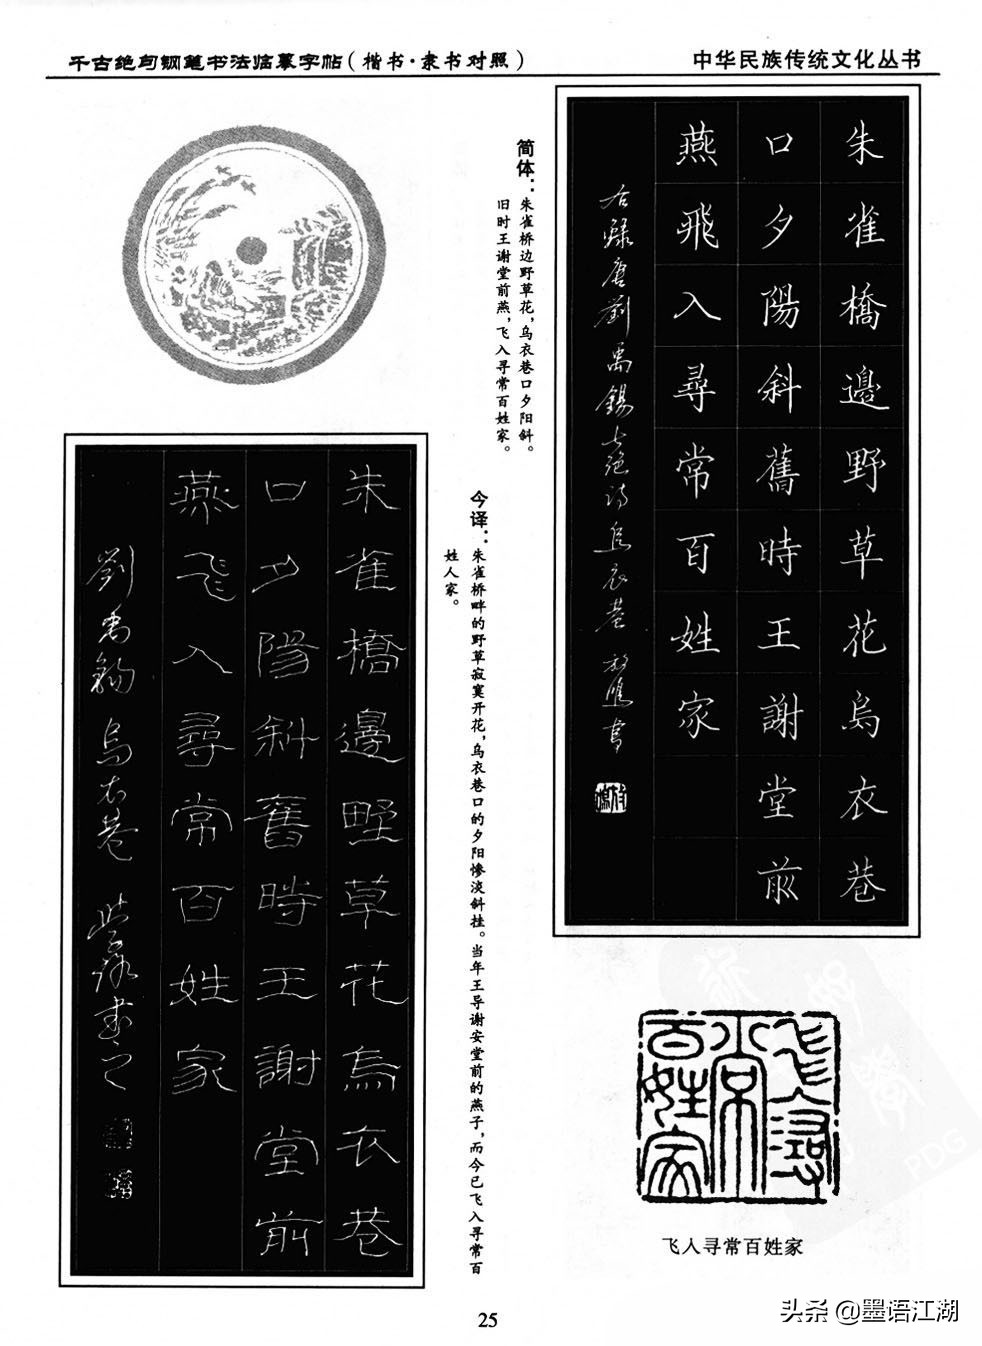 千古绝句钢笔书法临摹字帖(楷书·隶书对照)
中华民族传统文化丛书
朱雀橋邊野草花烏衣巷
口夕陽斜舊時王謝堂前
燕飛入尋常百姓家
右録唐劉禹錫七絕詩烏衣巷
简体：朱雀桥边野草花，乌衣巷口夕阳斜。
旧时王谢堂前燕，飞入寻常百姓家。
今译：朱雀桥畔的野草寂寞开花，乌衣巷口的夕阳惨淡斜挂。当年王导谢安堂前的燕子，而今已飞入寻常百
姓人家。
朱雀橋邊野草花烏衣巷
口夕陽斜舊時王謝堂前
燕飛入尋常百姓家
劉禹錫烏衣巷
飞寻常百姓家
飞人寻常百姓家
25
头条@墨语江湖